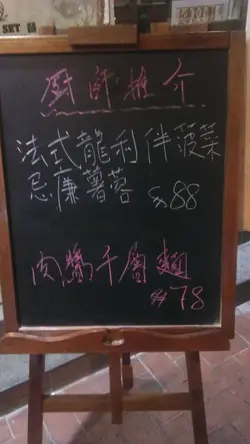 SET
廚師推介
法式龍利伴菠菜
忌廉薯蓉 $88
肉醬千層麵
$78